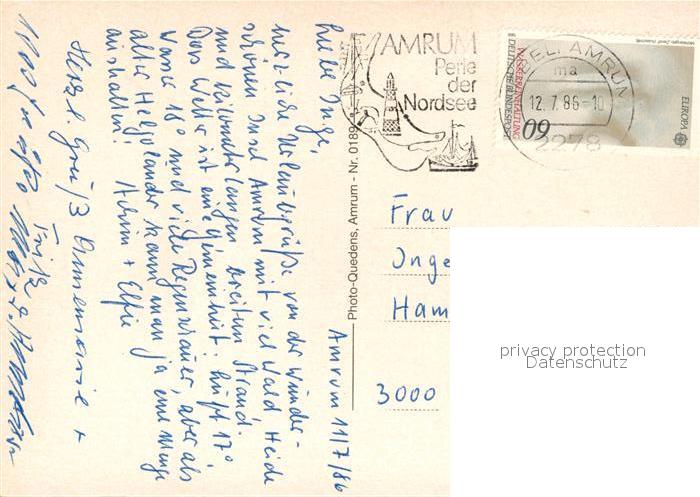 Amrum 11/7/86
Liebe Inge,
herzliche Urlaubsgrüße von der wunder-
schönen Insel Amrum mit viel Wald Heide
und kilometerlangen breiten Strand.
Das Wetter ist eine Gemeinheit. Luft 17°,
Wasser 16° und viele Regenschauer, aber als
alter Helgoländer kann man ja eine Menge
aushalten! Achim + Elfie
Herzl. Gruß Annemarie +
Fritz
AMRUM
Perle
der
Nordsee
AMRUM
ma
12.7.86-10
2278
60
DEUTSCHE BUNDESPOST
WASSERREINHALTUNG
EUROPA
Photo-Quedens, Amrum - Nr. 0189
Frau
Inge
Ham
3000
privacy protection
Datenschutz